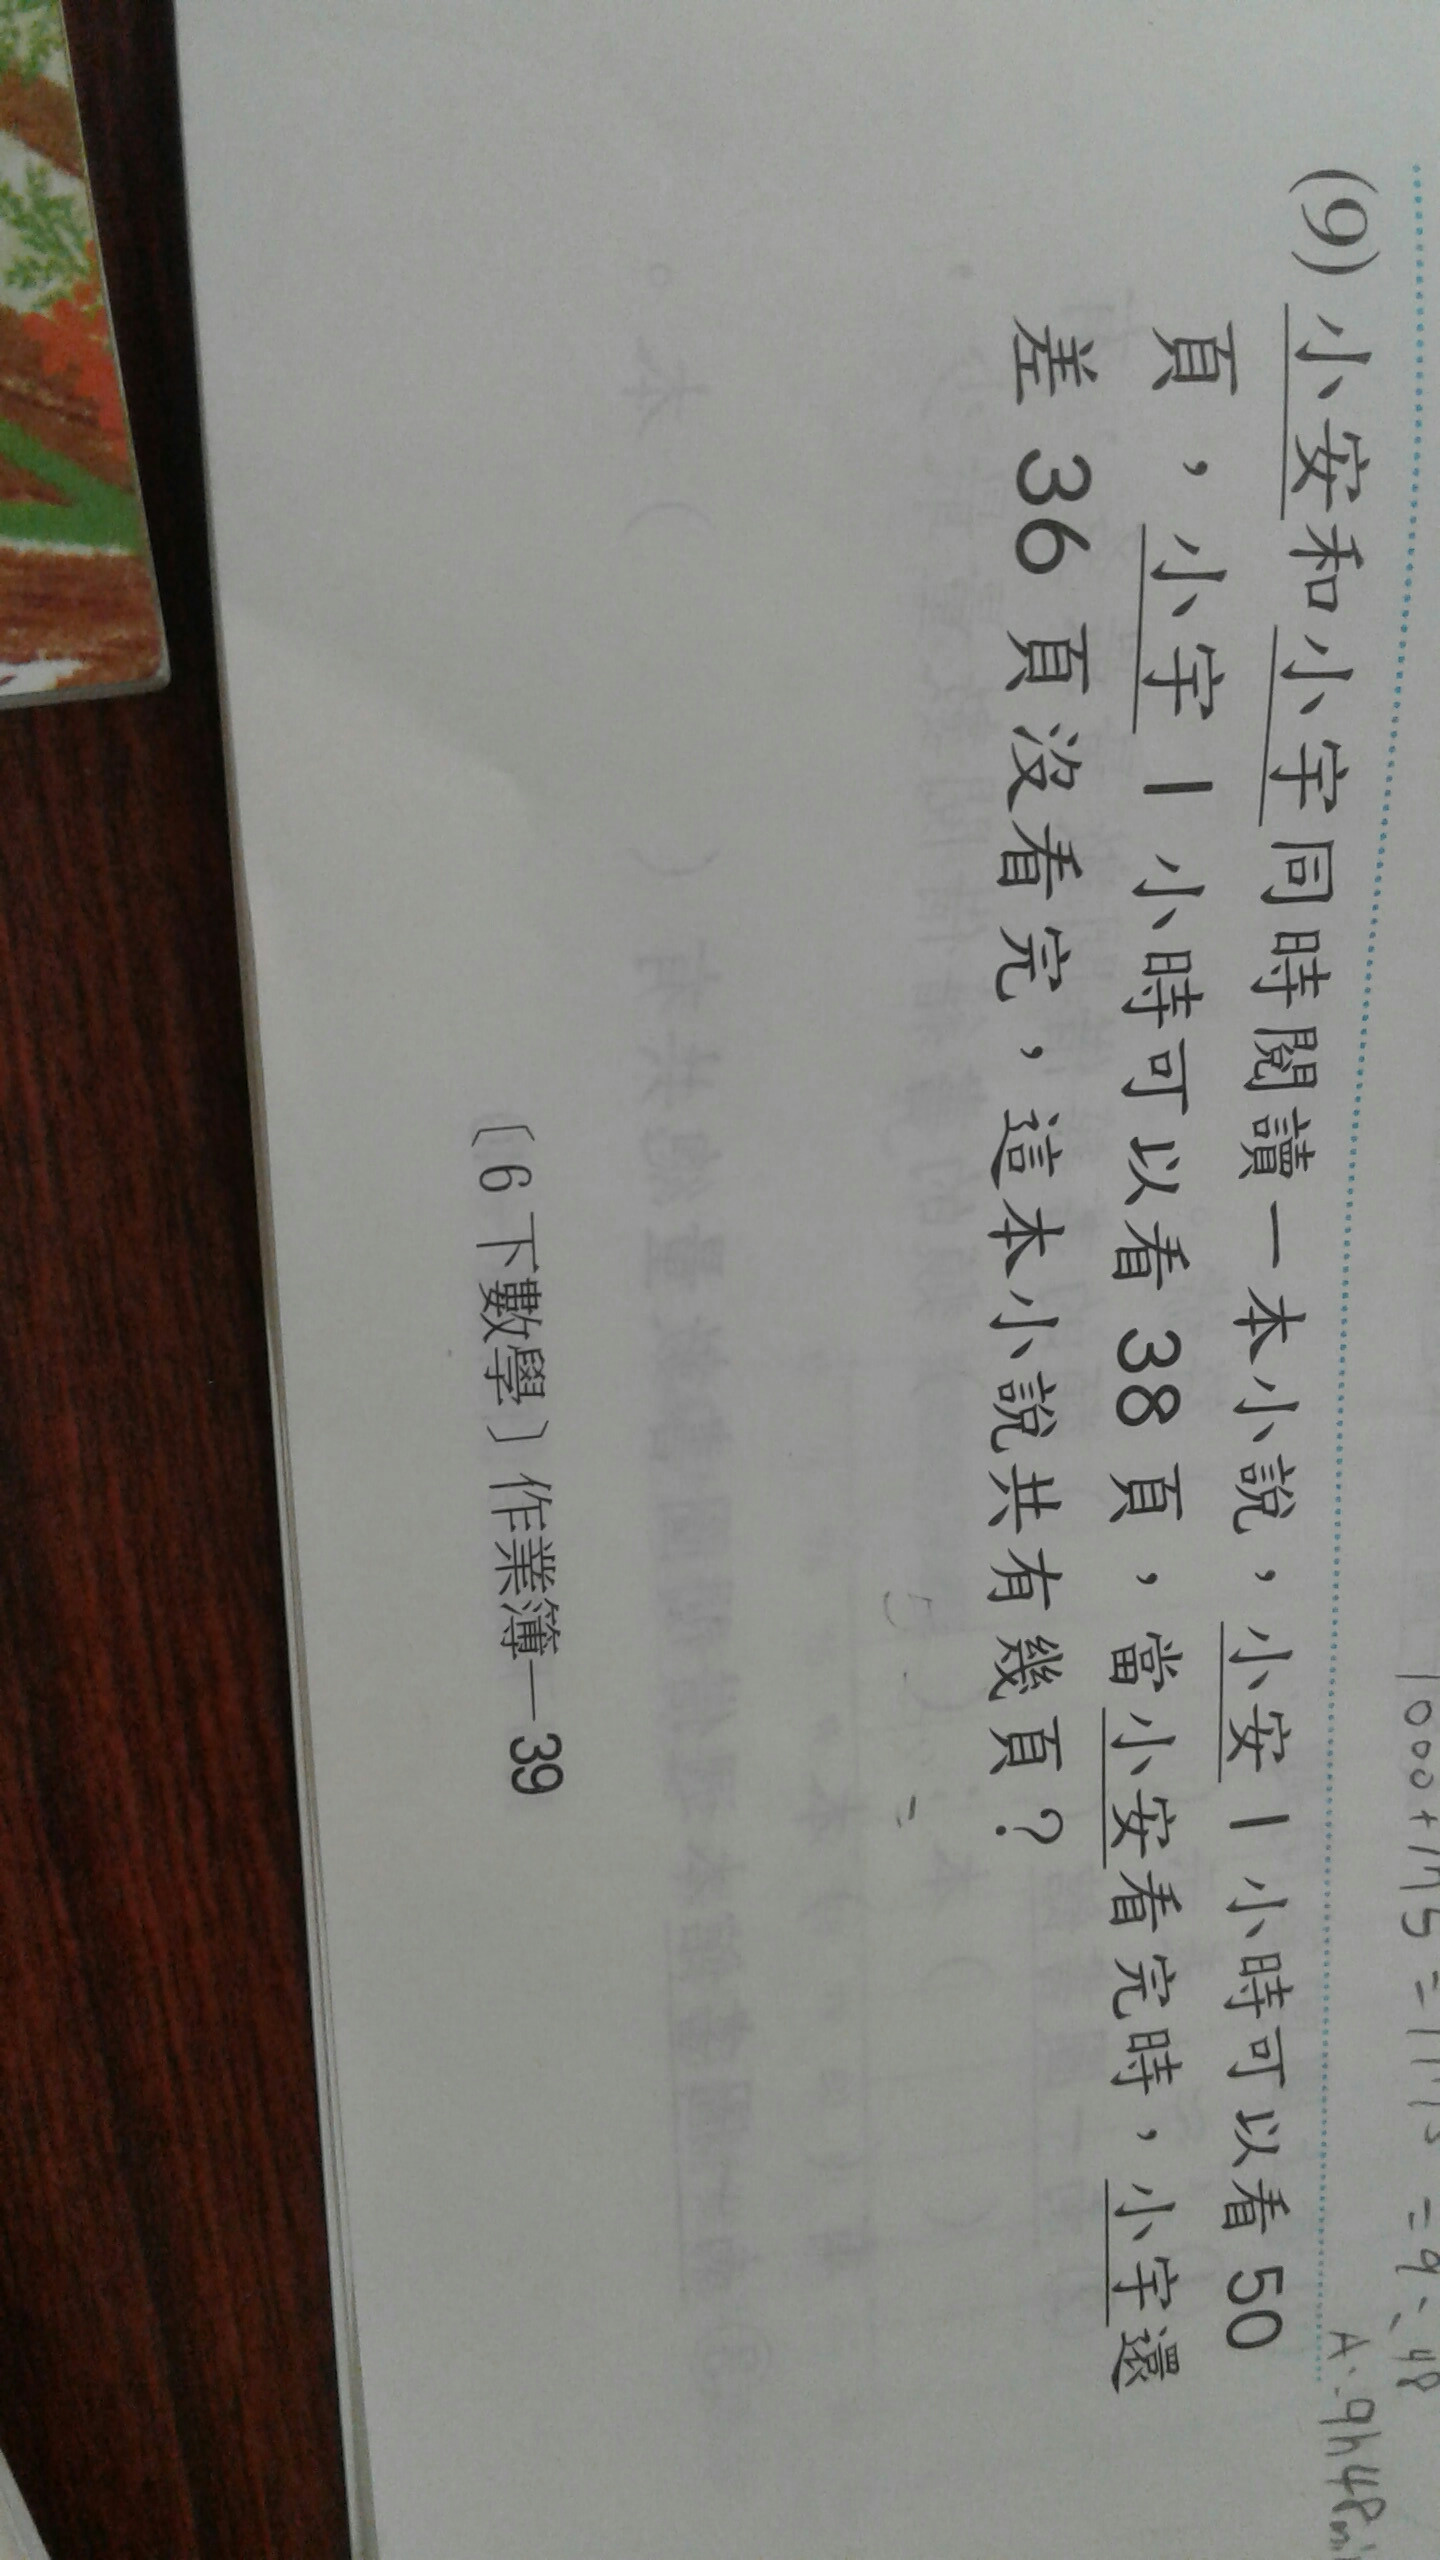 (9)小安和小宇同時閱讀一本小說，小安1小時可以看50
頁，小宇1小時可以看38頁，當小安看完時，小宇還
差36頁沒看完，這本小說共有幾頁？
〔6下數學〕作業簿—39
A:9h48mi